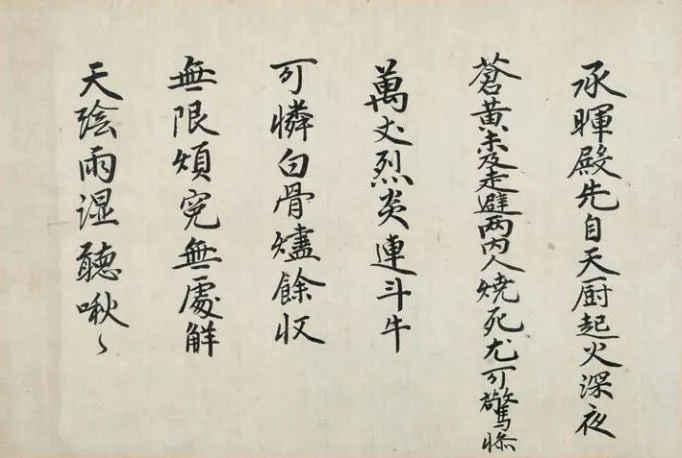 承暉殿先自天厨起火深夜
蒼黃未及走避两内人燒死尤可驚慘
萬丈烈炎連斗牛
可憐白骨燼餘収
無限煩寃無處解
天陰雨湿聽啾〻